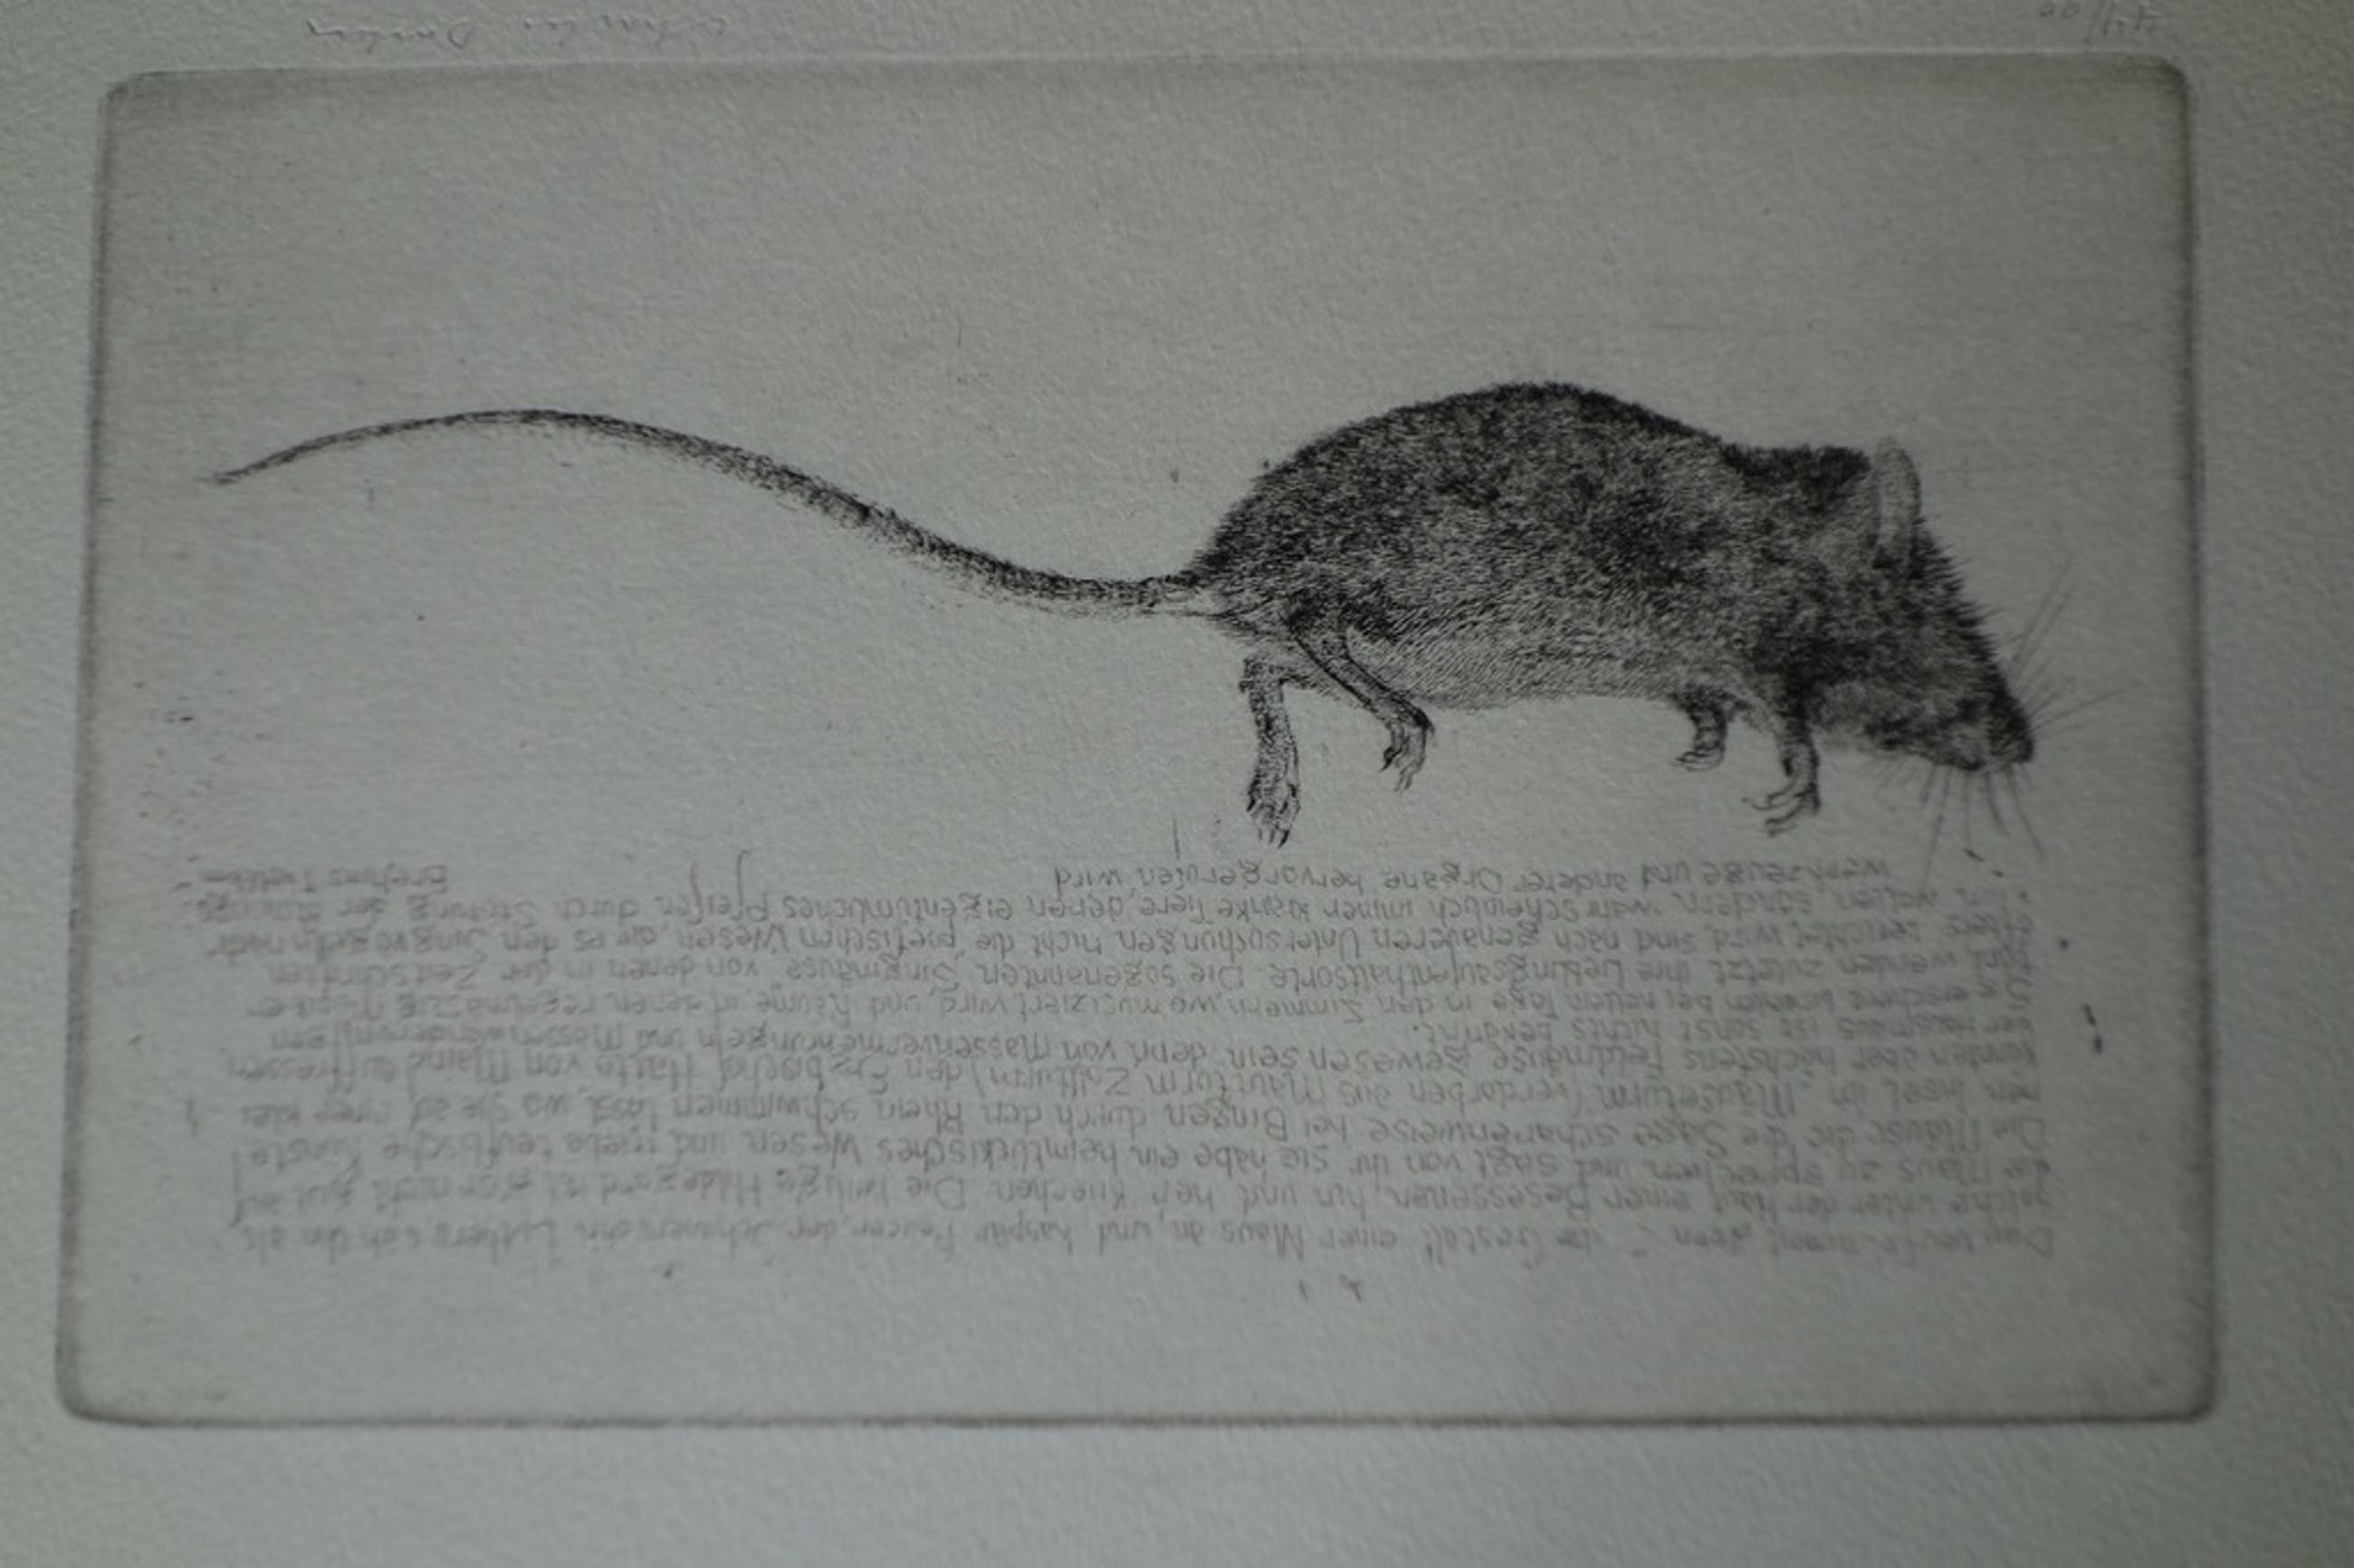 Der Teufel nimmt „gern“ die Gestalt einer Maus an, und Kaspar Peucer, der Schwiegersohn sah ihn als
solche unter der Haut einer Besessenen „hin und her“ kriechen. Die heilige Hildegard ist gar nicht gut auf
die Maus zu sprechen und sagt von ihr sie habe ein heimtückisches Wesen und treibe teuflische Künste!
Die Mäuse die die Sage scharenweise bei Bingen durch den Rhein schwimmen lässt, wo sie auf einer klei
nen Insel im „Mäuseturm“ (verdorben aus Mautturm Zollturm) den Erzbischof Hatto von Mainz auffressen
konnten aber höchstens Feldmäuse gewesen sein, denn von Massenvermehrungen und Massenwanderungen
der Hausmaus ist sonst nichts bekannt.
Sie erscheint bei hellem Tage in den Zimmern, wo musiziert wird, und Räume, in denen regelmässig
werden zuletzt ihre Lieblingsaufenthaltsorte. Die sogenannten „Singmäuse“ von denen in der Zeitschriften
öfters berichtet wird, sind nach genaueren Untersuchungen nicht die „poetischen Wesen“, die es den Singvögeln nach-
wollen, sondern wahrscheinlich immer kranke Tiere, denen eigentümliches Pfeifen durch Störung der
werkzeuge und anderer Organe hervorgerufen wird
Brehms Tierleben